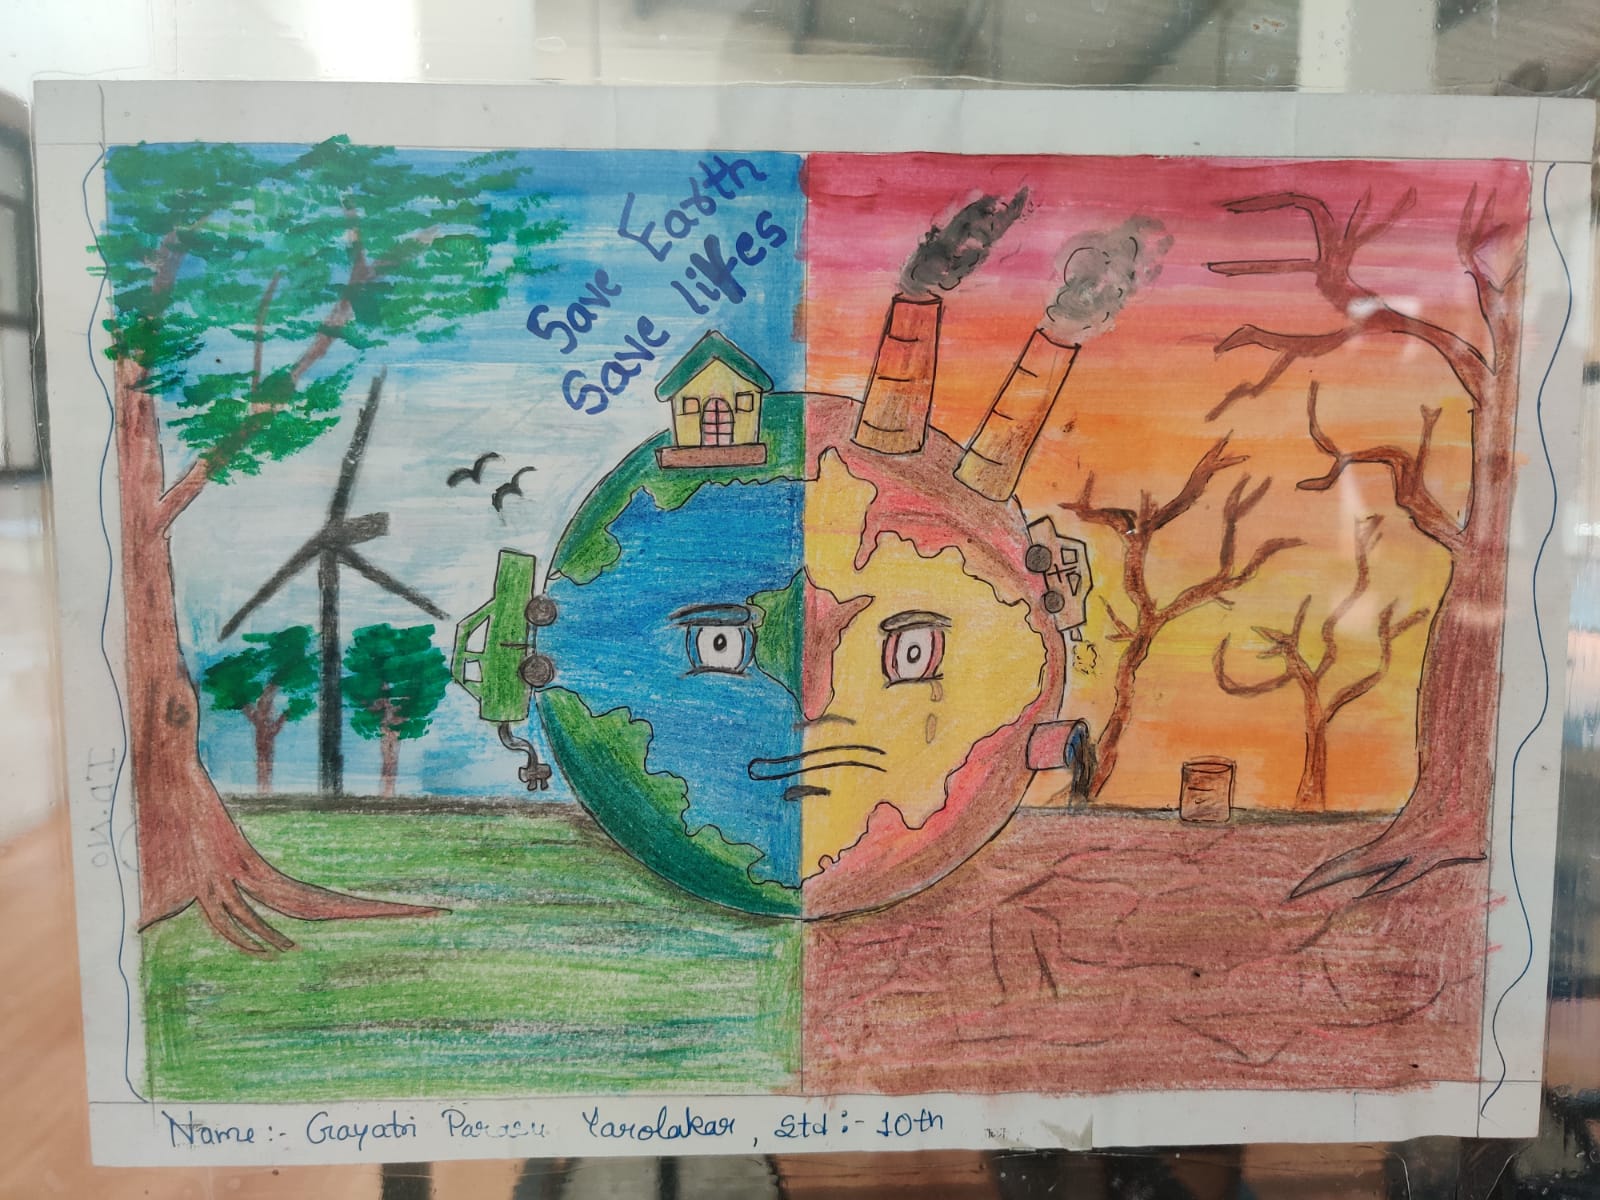 Save Earth
Save lives
ID.NO
Name:- Gayatri Parasu Yarolakar, Std:- 10th